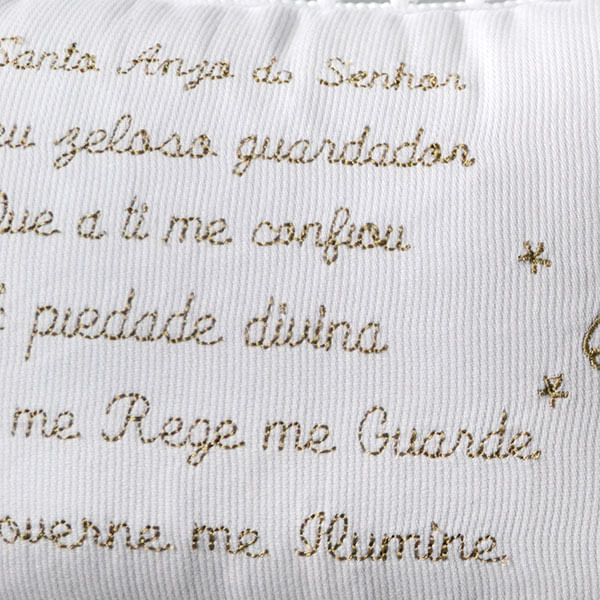 Santo Anzo do Senhor
eu zeloso guardador
Que a ti me confiou
piedade divina
me Rege me Guarde
overne me Ilumine